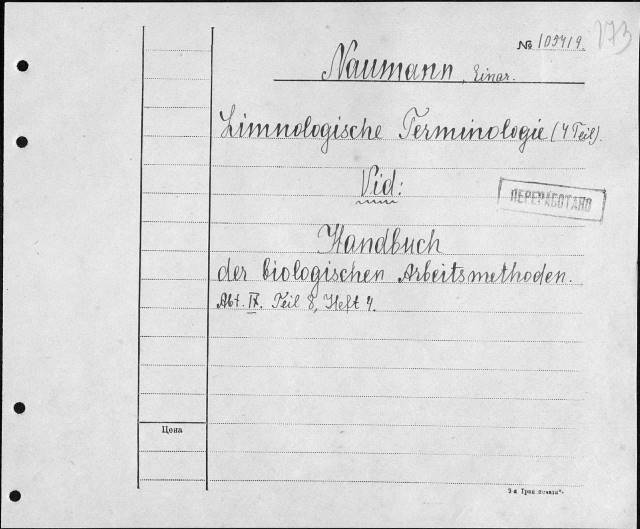 173
№ 105419.
Naumann, Einar.
Limnologische Terminologie (4 Teil).
Vid:
ПЕРЕРАБОТАНО
Handbuch
der biologischen Arbeitsmethoden.
Abt. IX. Teil 8, Heft 4.
Цена